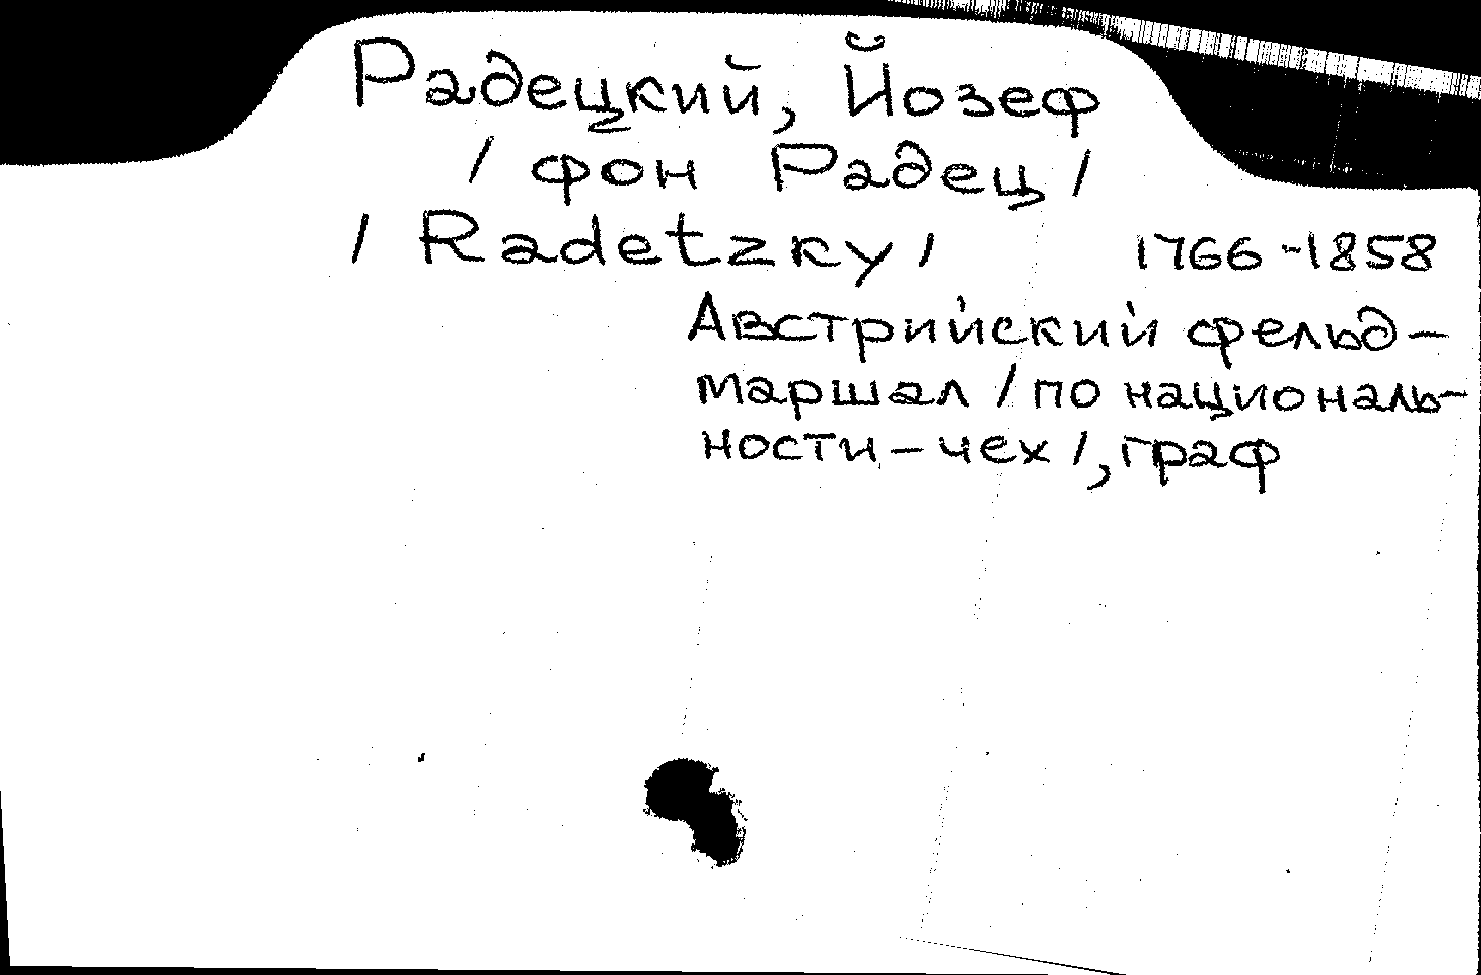 Радецкий, Йозеф
/ фон Радец /
/ Radetzky /
1766-1858
Австрийский фельд-
маршал / по националь-
ности - чех /, граф